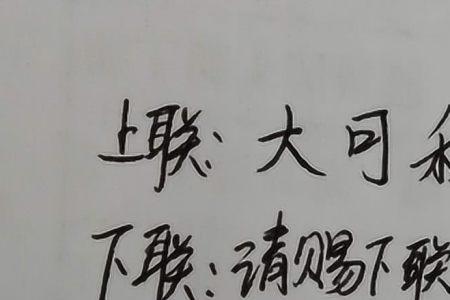 上联：大可
下联：请赐下联